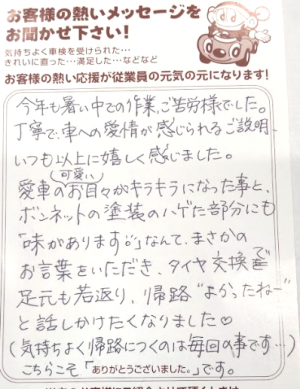 お客様の熱いメッセージを
お聞かせ下さい!
気持ちよく車検を受けられた…
きれいに直った…満足した…などなど
お客様の熱い応援が従業員の元気の元になります!
今年も暑い中での作業、ご苦労様でした。
丁寧で、車への愛情が感じられるご説明、
いつも以上に嬉しく感じました。
愛車の(可愛い)お目々がキラキラになった事と、
ボンネットの塗装のハゲた部分にも
「味があります。」なんて、まさかの
お言葉をいただき、タイヤ交換で
足元も若返り、帰路“よかったねー”
と話しかけたくなりました♡
(気持ちよく帰路につくのは毎回の事です…)
こちらこそ「ありがとうございました。」です。